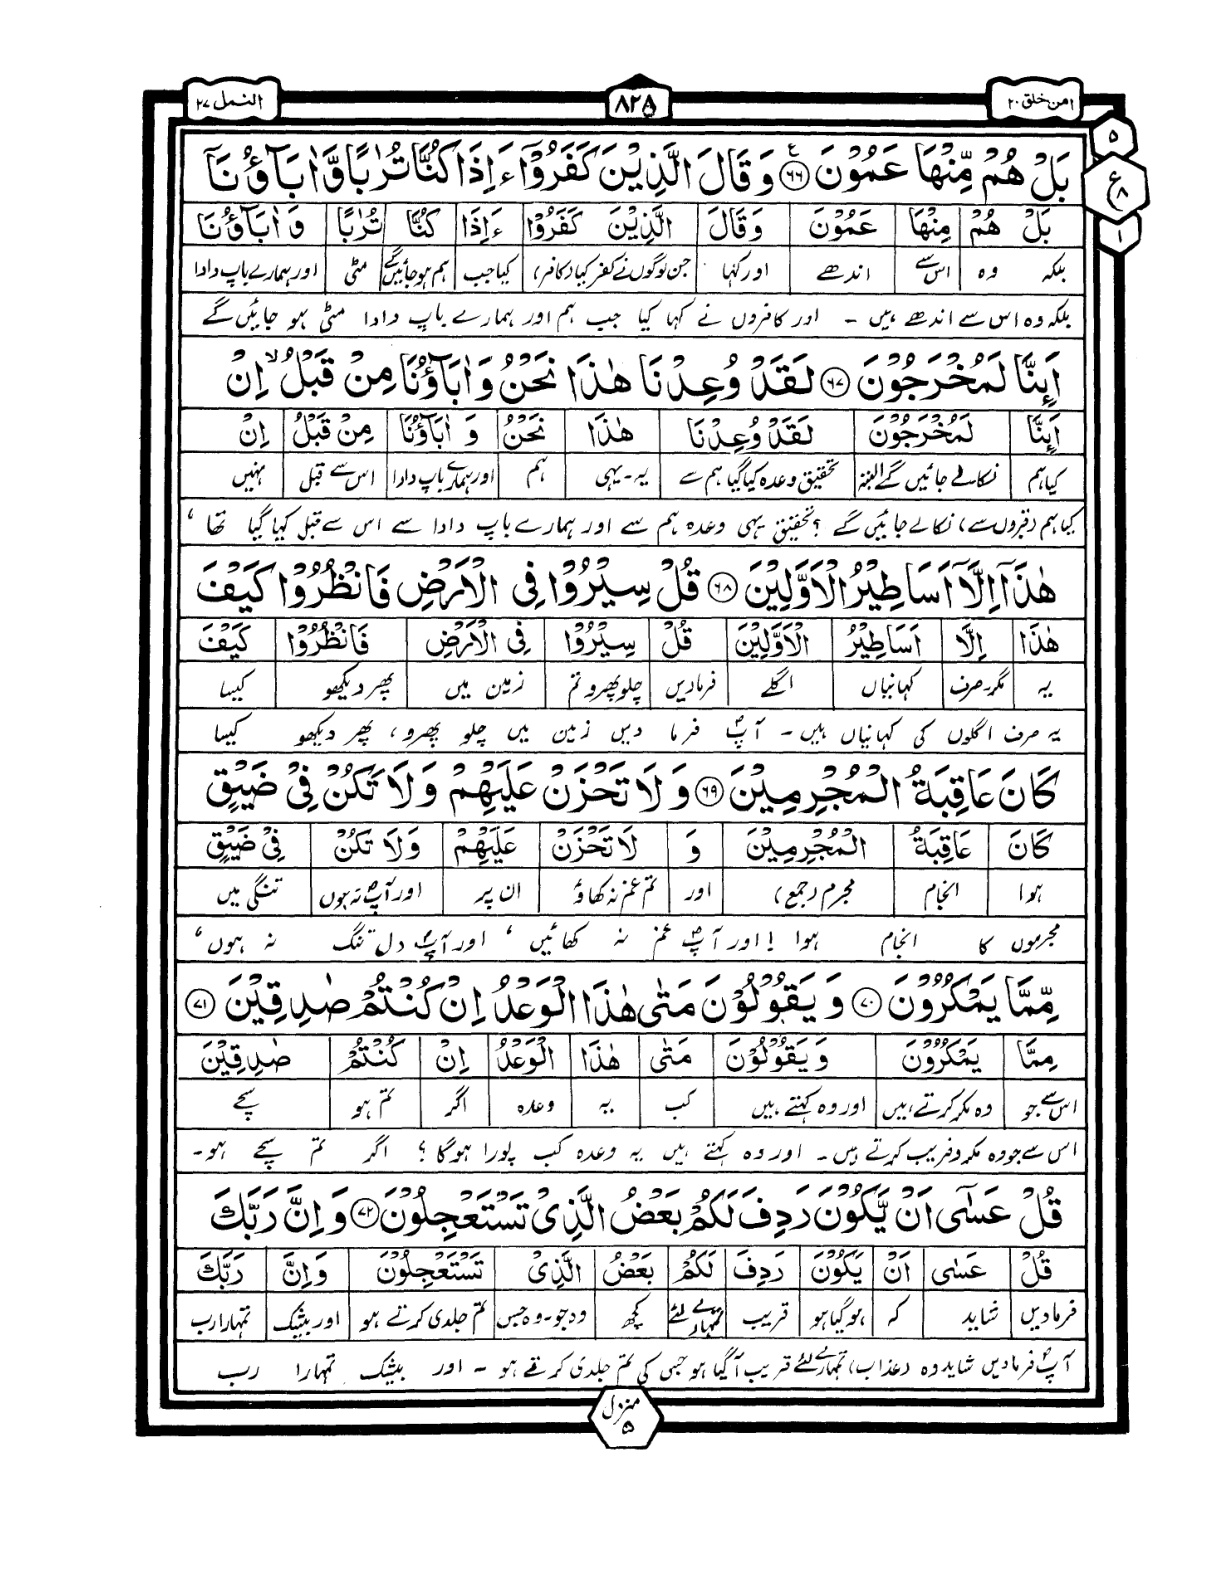 امن خلق ۲۰
۸۲۵
النمل ۲۷
۵
ع
۸
۱
بَلْ هُمْ مِّنْهَا عَمُوْنَ ۶۶ وَقَالَ الَّذِيْنَ كَفَرُوْٓا ءَاِذَا كُنَّا تُرٰبًا وَّاٰبَآؤُنَآ
بَلْ هُمْ مِنْهَا عَمُوْنَ وَقَالَ الَّذِيْنَ كَفَرُوْا ءَاِذَا كُنَّا تُرٰبًا وَ اٰبَآؤُنَا
بلکہ وہ اس سے اندھے اور کہا جن لوگوں نے کفر کیا (کافر) کیا جب ہم ہو جائیں گے مٹی اور ہمارے باپ دادا
بلکہ وہ اس سے اندھے ہیں ۔ اور کافروں نے کہا کیا جب ہم اور ہمارے باپ دادا مٹی ہو جائیں گے
اَئِنَّا لَمُخْرَجُوْنَ ۶۷ لَقَدْ وُعِدْنَا هٰذَا نَحْنُ وَاٰبَآؤُنَا مِنْ قَبْلُ ۙ اِنْ
اَئِنَّا لَمُخْرَجُوْنَ لَقَدْ وُعِدْنَا هٰذَا نَحْنُ وَ اٰبَآؤُنَا مِنْ قَبْلُ اِنْ
کیا ہم نکالے جائیں گے البتہ تحقیق وعدہ کیا گیا ہم سے یہ ۔ یہی ہم اور ہمارے باپ دادا اس سے قبل نہیں
کیا ہم (قبروں سے) نکالے جائیں گے ؟ تحقیق یہی وعدہ ہم سے اور ہمارے باپ دادا سے اس سے قبل کہا گیا تھا ،
هٰذَآ اِلَّآ اَسَاطِيْرُ الْاَوَّلِيْنَ ۶۸ قُلْ سِيْرُوْا فِى الْاَرْضِ فَانْظُرُوْا كَيْفَ
هٰذَا اِلَّا اَسَاطِيْرُ الْاَوَّلِيْنَ قُلْ سِيْرُوْا فِى الْاَرْضِ فَانْظُرُوْا كَيْفَ
یہ مگر صرف کہانیاں اگلے فرمادیں چلو پھرو تم زمین میں پھر دیکھو کیسا
یہ صرف اگلوں کی کہانیاں ہیں ۔ آپؐ فرما دیں زمین میں چلو پھرو ، پھر دیکھو کیسا
كَانَ عَاقِبَةُ الْمُجْرِمِيْنَ ۶۹ وَلَا تَحْزَنْ عَلَيْهِمْ وَلَا تَكُنْ فِىْ ضَيْقٍ
كَانَ عَاقِبَةُ الْمُجْرِمِيْنَ وَ لَا تَحْزَنْ عَلَيْهِمْ وَلَا تَكُنْ فِىْ ضَيْقٍ
ہوا انجام مجرم (جمع) اور تم غم نہ کھاؤ ان پر اور آپؐ نہ ہوں تنگی میں
مجرموں کا انجام ہوا ! اور آپؐ غم نہ کھائیں ، اور آپؐ دل تنگ نہ ہوں ،
مِّمَّا يَمْكُرُوْنَ ۷۰ وَيَقُوْلُوْنَ مَتٰى هٰذَا الْوَعْدُ اِنْ كُنْتُمْ صٰدِقِيْنَ ۷۱
مِمَّا يَمْكُرُوْنَ وَيَقُوْلُوْنَ مَتٰى هٰذَا الْوَعْدُ اِنْ كُنْتُمْ صٰدِقِيْنَ
اس سے جو وہ مکر کرتے ہیں اور وہ کہتے ہیں کب یہ وعدہ اگر تم ہو سچے
اس سے جو وہ مکر و فریب کرتے ہیں ۔ اور وہ کہتے ہیں یہ وعدہ کب پورا ہوگا ؟ اگر تم سچے ہو ۔
قُلْ عَسٰٓى اَنْ يَّكُوْنَ رَدِفَ لَكُمْ بَعْضُ الَّذِىْ تَسْتَعْجِلُوْنَ ۷۲ وَاِنَّ رَبَّكَ
قُلْ عَسٰى اَنْ يَكُوْنَ رَدِفَ لَكُمْ بَعْضُ الَّذِىْ تَسْتَعْجِلُوْنَ وَاِنَّ رَبَّكَ
فرمادیں شاید کہ ہو گیا ہو قریب تمہارے لئے کچھ وہ جو ۔ وہ جس تم جلدی کرتے ہو اور بیشک تمہارا رب
آپؐ فرمادیں شاید وہ (عذاب) تمہارے لئے قریب آ گیا ہو جس کی تم جلدی کرتے ہو ۔ اور بیشک تمہارا رب
منزل
۵